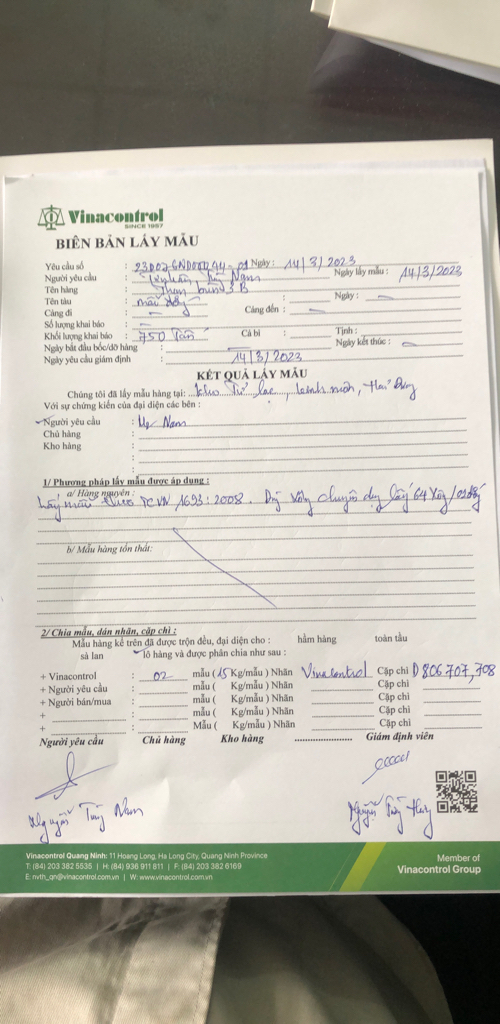 Vinacontrol
SINCE 1957
BIÊN BẢN LẤY MẪU
Yêu cầu số : Ngày : 14/3/2023
Người yêu cầu : Nam Ngày lấy mẫu : 14/3/2023
Tên hàng : Than 3B
Tên tàu : : Ngày :
Cảng đi : – Cảng đến : –
Số lượng khai báo : –
Khối lượng khai báo : 750 Tấn Cá bì : Tịnh :
Ngày bắt đầu bốc/dỡ hàng : Ngày kết thúc : –
Ngày yêu cầu giám định : 14/3/2023
KẾT QUẢ LẤY MẪU
Chúng tôi đã lấy mẫu hàng tại: Kho Tử Lạc, Kinh môn, Hải Dương
Với sự chứng kiến của đại diện các bên :
Người yêu cầu : Mr Nam
Chủ hàng :
Kho hàng :
1/ Phương pháp lấy mẫu được áp dụng :
a/ Hàng nguyên :
Lấy mẫu theo TCVN 1693:2008. Dùng xẻng chuyên dụng lấy 64
b/ Mẫu hàng tổn thất:
2/ Chia mẫu, dán nhãn, cặp chì :
Mẫu hàng kể trên đã được trộn đều, đại diện cho : hầm hàng toàn tầu
sà lan lô hàng và được phân chia như sau :
+ Vinacontrol : 02 mẫu (15 Kg/mẫu ) Nhãn Vinacontrol Cặp chì D806707,708
+ Người yêu cầu : mẫu ( Kg/mẫu ) Nhãn Cặp chì
+ Người bán/mua : mẫu ( Kg/mẫu ) Nhãn Cặp chì
+ : mẫu ( Kg/mẫu ) Nhãn Cặp chì
+ : Mẫu ( Kg/mẫu ) Nhãn Cặp chì
Người yêu cầu Chủ hàng Kho hàng ..................... Giám định viên
Nguyễn Tùng Nam Nguyễn Huy
Vinacontrol Quang Ninh: 11 Hoang Long, Ha Long City, Quang Ninh Province
T: (84) 203 382 5535 | H: (84) 936 911 811 | F: (84) 203 382 6169
E: nvth_qn@vinacontrol.com.vn | W: www.vinacontrol.com.vn
Member of
Vinacontrol Group